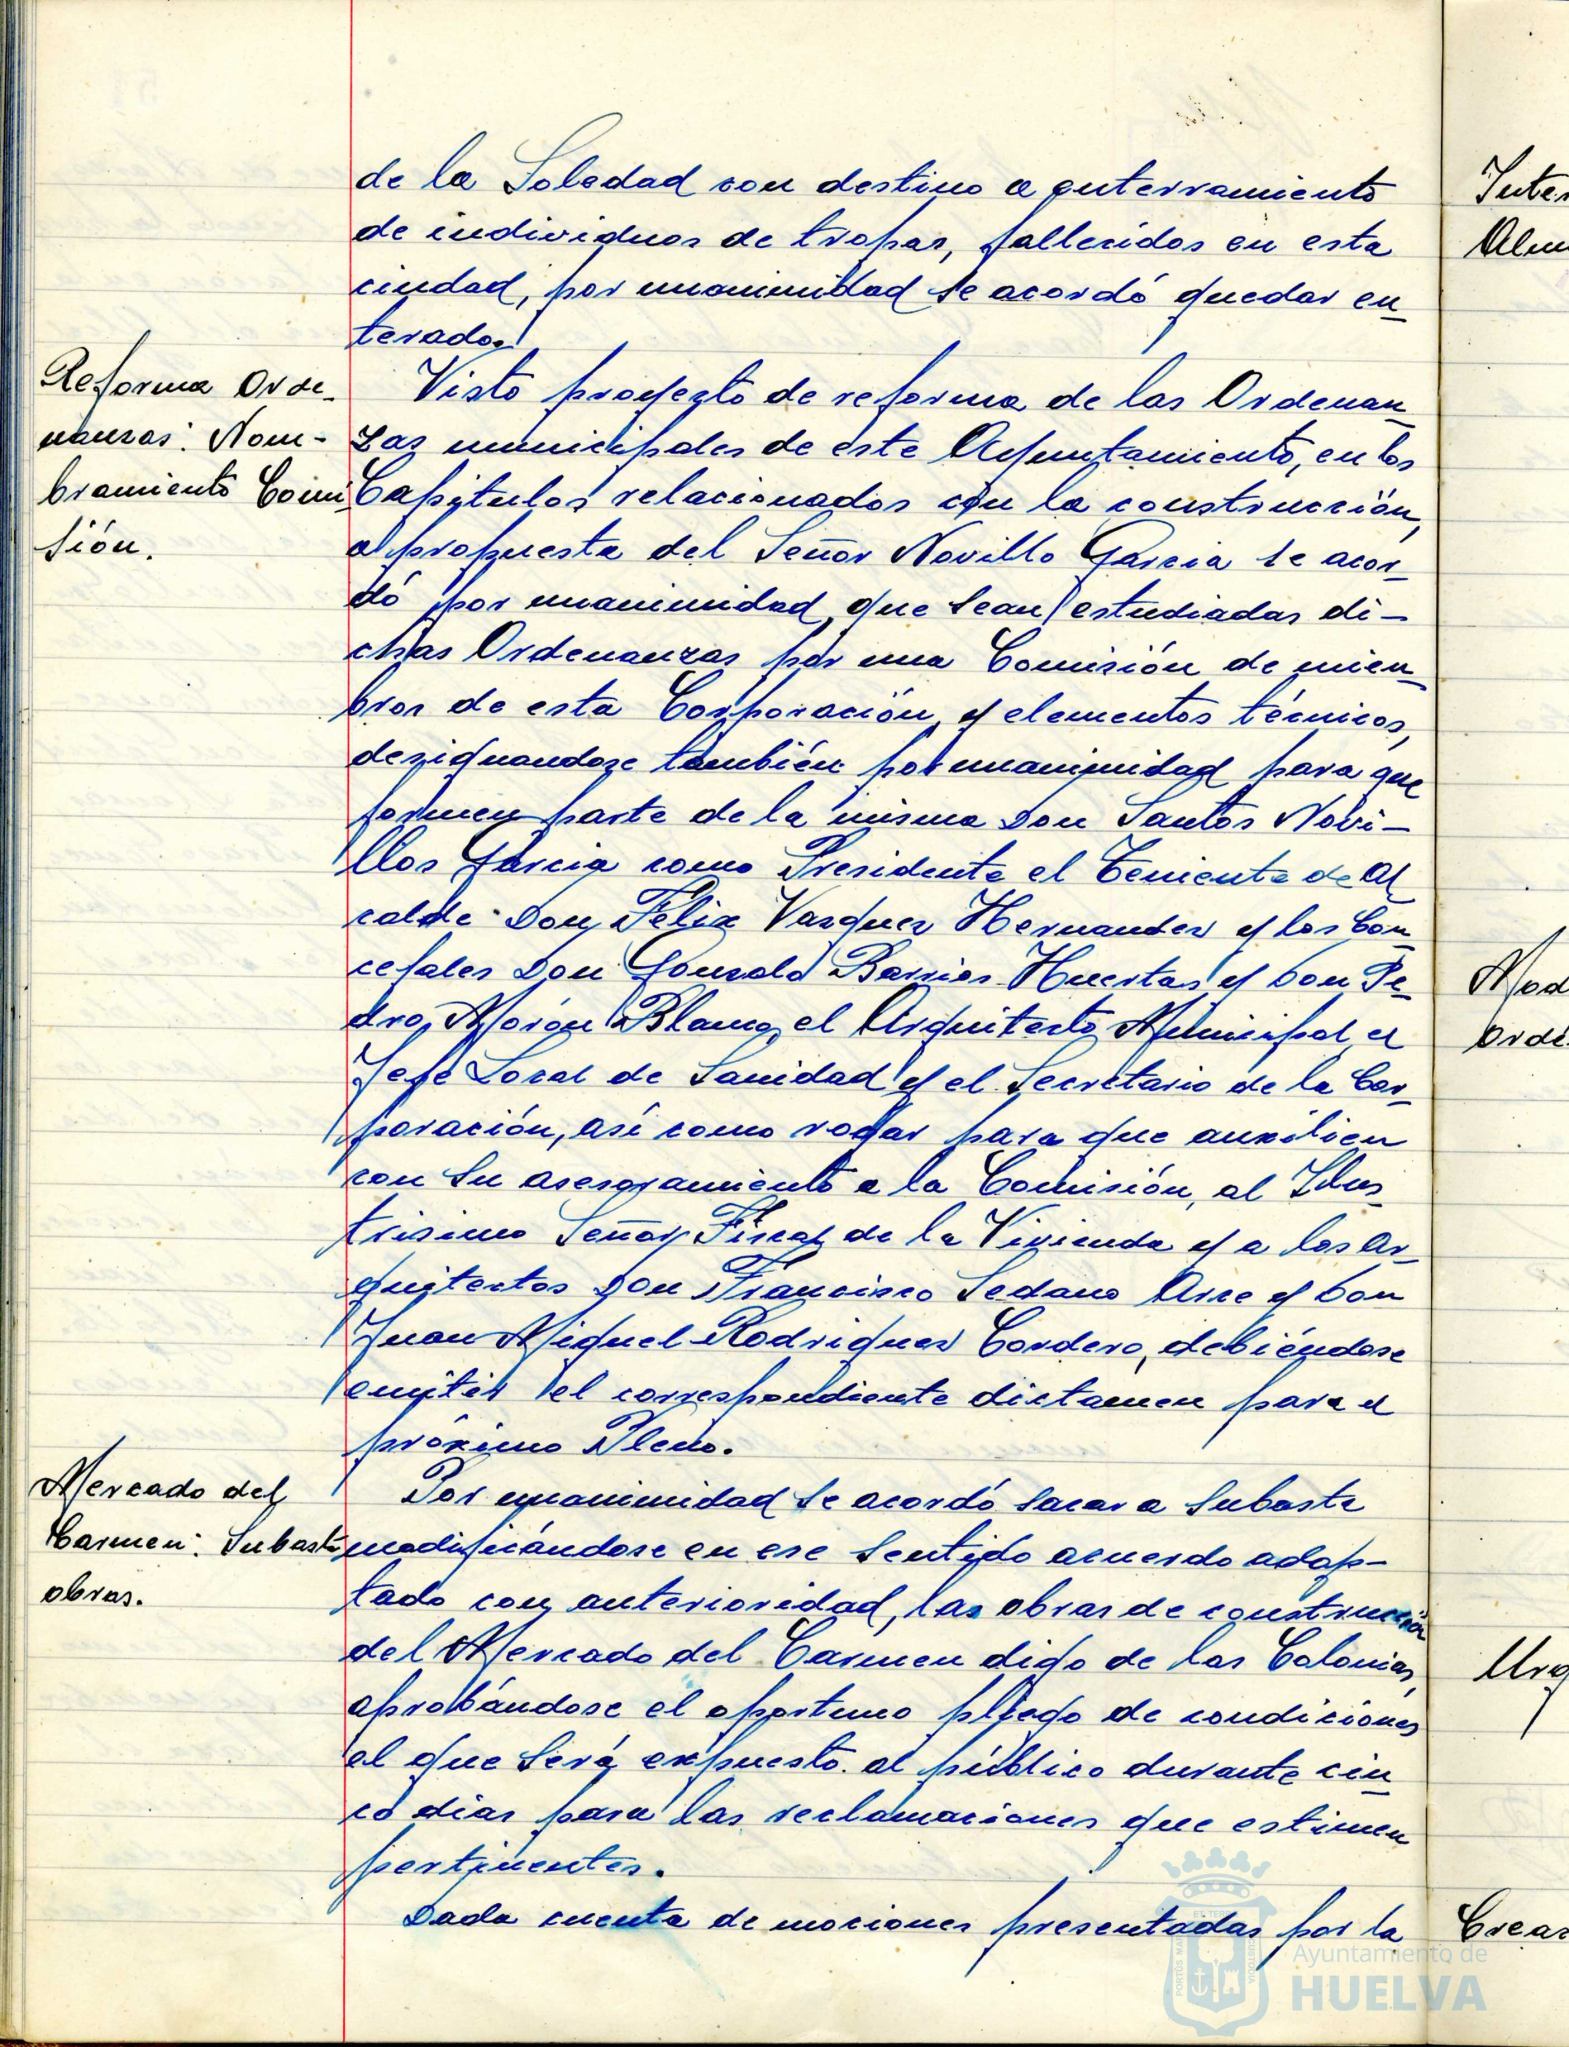 de la Soledad con destino a enterramiento
de individuos de tropas, fallecidos en esta
ciudad, por unanimidad se acordó quedar en
terado.
Reforma Orde-
nanzas: Nom-
bramiento Comi
sión.
Visto proyecto de reforma de las Ordenan
zas municipales de este Ayuntamiento, en los
Capítulos relacionados con la construcción,
a propuesta del Señor Novillo Garcia se acor-
dó por unanimidad, que sean estudiadas di-
chas Ordenanzas por una Comisión de miem
bros de esta Corporación, y elementos técnicos,
designandose también por unanimidad para que
formen parte de la misma Don Santos Novi-
llos Garcia como Presidente el Teniente de Al
calde Don Felix Vazquez Hernandez y los Con
cejales Don Gonzalo Barrios Huertas y Don Pe-
dro Morón Blanco, el Arquitecto Municipal, el
Jefe Local de Sanidad y el Secretario de la Cor-
poración, así como rogar para que auxilien
con su asesoramiento a la Comisión, al Ilus-
trisimo Señor Fiscal de la Vivienda y a los Ar-
quitectos Don Francisco Sedano Arce y Don
Juan Miguel Rodriguez Cordero, debiéndose
emitir el correspondiente dictamen para el
próximo Pleno.
Mercado del
Carmen: Subasta
obras.
Por unanimidad se acordó sacar a subasta
modificándose en ese sentido acuerdo adop-
tado con anterioridad, las obras de construcción
del Mercado del Carmen digo de las Colonias,
aprobándose el oportuno pliego de condiciones
el que será expuesto al público durante cin
co dias para las reclamaciones que estimen
pertinentes.
Dada cuenta de mociones presentadas por la
Inter
Alum
Mod
Orde
Urg
Crea
Ayuntamiento de
HUELVA